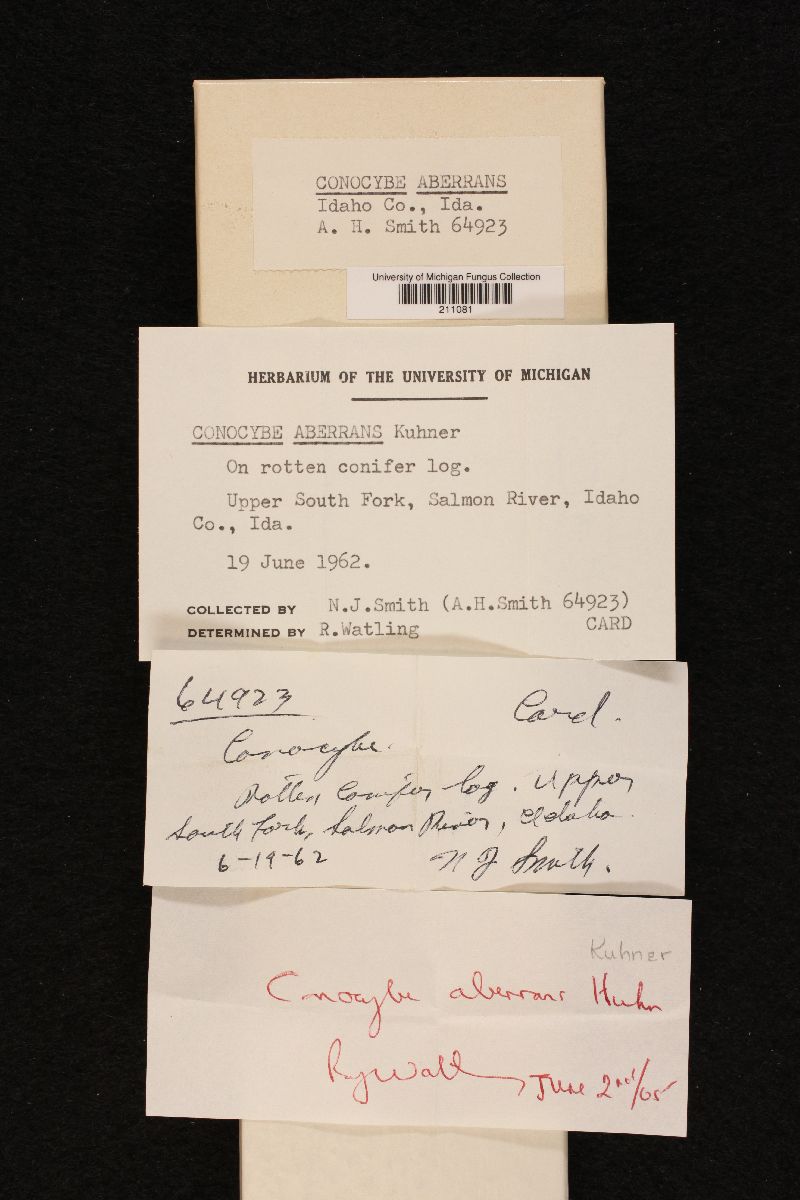 CONOCYBE ABERRANS
Idaho Co., Ida.
A. H. Smith 64923
University of Michigan Fungus Collection
211081
HERBARIUM OF THE UNIVERSITY OF MICHIGAN
CONOCYBE ABERRANS Kuhner
On rotten conifer log.
Upper South Fork, Salmon River, Idaho
Co., Ida.
19 June 1962.
COLLECTED BY N.J.Smith (A.H.Smith 64923)
DETERMINED BY R.Watling CARD
64923 Card.
Conocybe.
Rotten conifer log. Upper
South Fork, Salmon River, Idaho.
6-19-62 N J Smith.
Kuhner
Conocybe aberrans Huhn
June 2nd/65